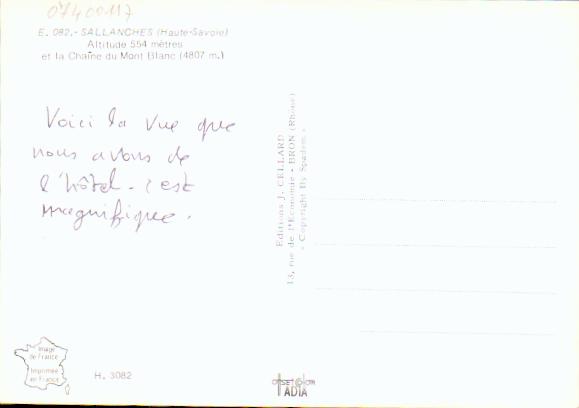 07400117
E. 082.- SALLANCHES (Haute-Savoie)
Altitude 554 mètres
et la Chaîne du Mont Blanc (4807 m.)
Voici la vue que
nous avons de
l'hôtel - c'est
magnifique.
Editions J. CELLARD
13, rue de l'Economie - BRON (Rhône)
« Copyright By Spadem »
Image
de France
Imprimée
en France
H. 3082
OFFSET COLOR
IADIA